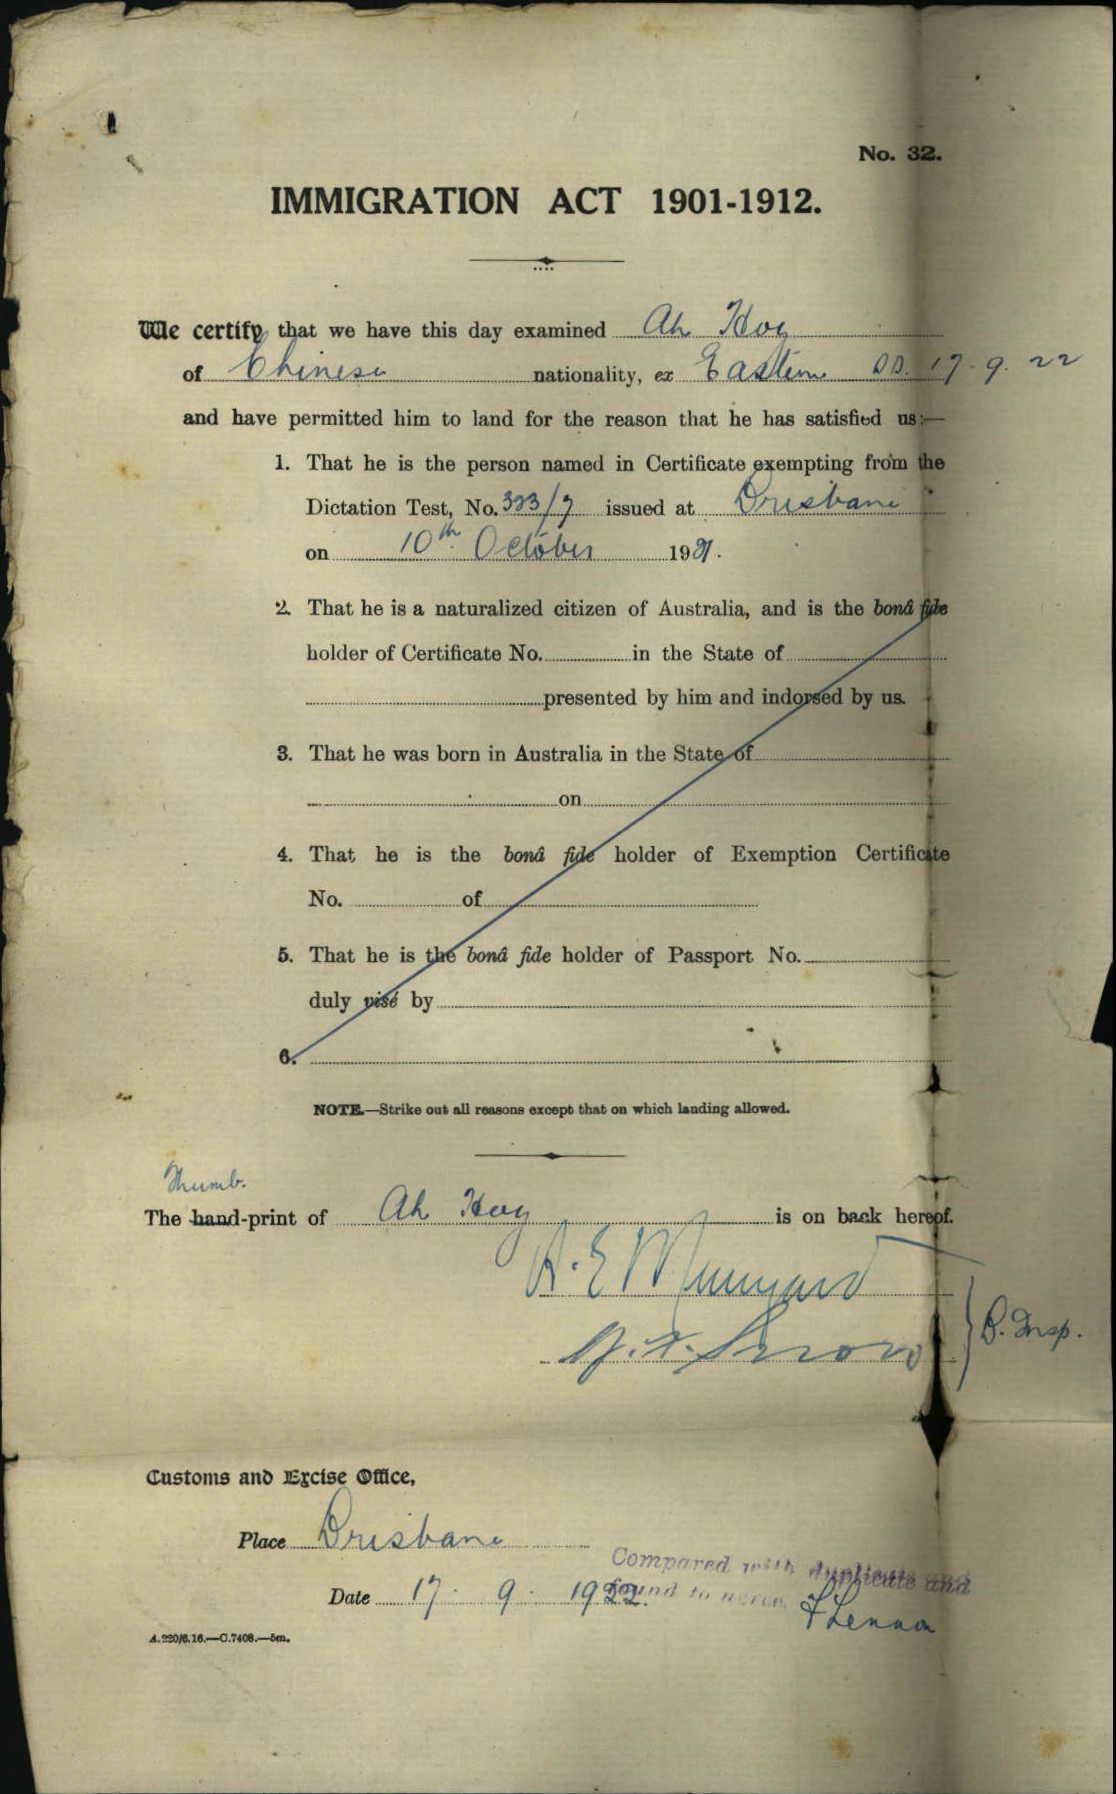 No. 32.
IMMIGRATION ACT 1901-1912.
We certify that we have this day examined Ah Hoy
of Chinese nationality, ex Eastern SS. 17-9.22
and have permitted him to land for the reason that he has satisfied us:—
1. That he is the person named in Certificate exempting from the
Dictation Test, No. 323/7 issued at Brisbane
on 10th October 1921.
2. That he is a naturalized citizen of Australia, and is the bonâ fide
holder of Certificate No. in the State of
presented by him and indorsed by us.
3. That he was born in Australia in the State of
on
4. That he is the bonâ fide holder of Exemption Certificate
No. of
5. That he is the bonâ fide holder of Passport No.
duly visé by
6.
NOTE.—Strike out all reasons except that on which landing allowed.
Thumb.
The hand-print of Ah Hoy is on back hereof.
B. Insp.
Customs and Excise Office,
Place Brisbane
Compared with duplicate and
Date 17. 9. 1922.
found to agree
A.220/6.16.—C.7408.—5m.